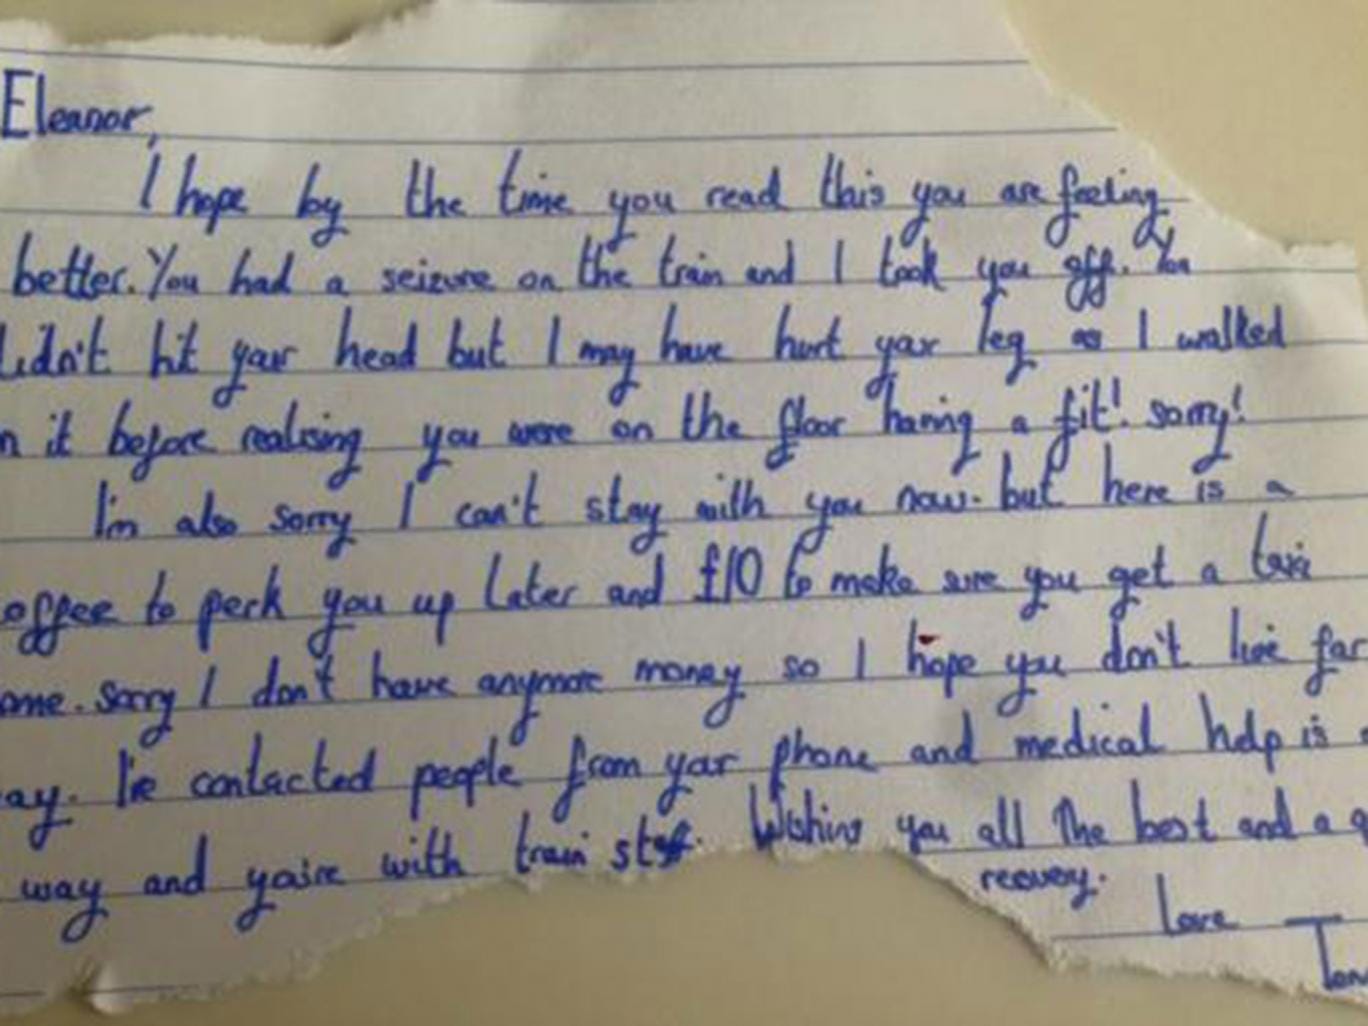 Eleanor,
I hope by the time you read this you are feeling
better. You had a seizure on the train and I took you off. You
didn't hit your head but I may have hurt your leg as I walked
n it before realising you were on the floor having a fit! sorry!
I'm also sorry I can't stay with you now. but here is a
offee to perk you up later and £10 to make sure you get a taxi
ome. sorry I don't have anymore money so I hope you don't live far
ay. I've contacted people from your phone and medical help is
way and you're with train staff. Wishing you all the best and a
recovery.
Love